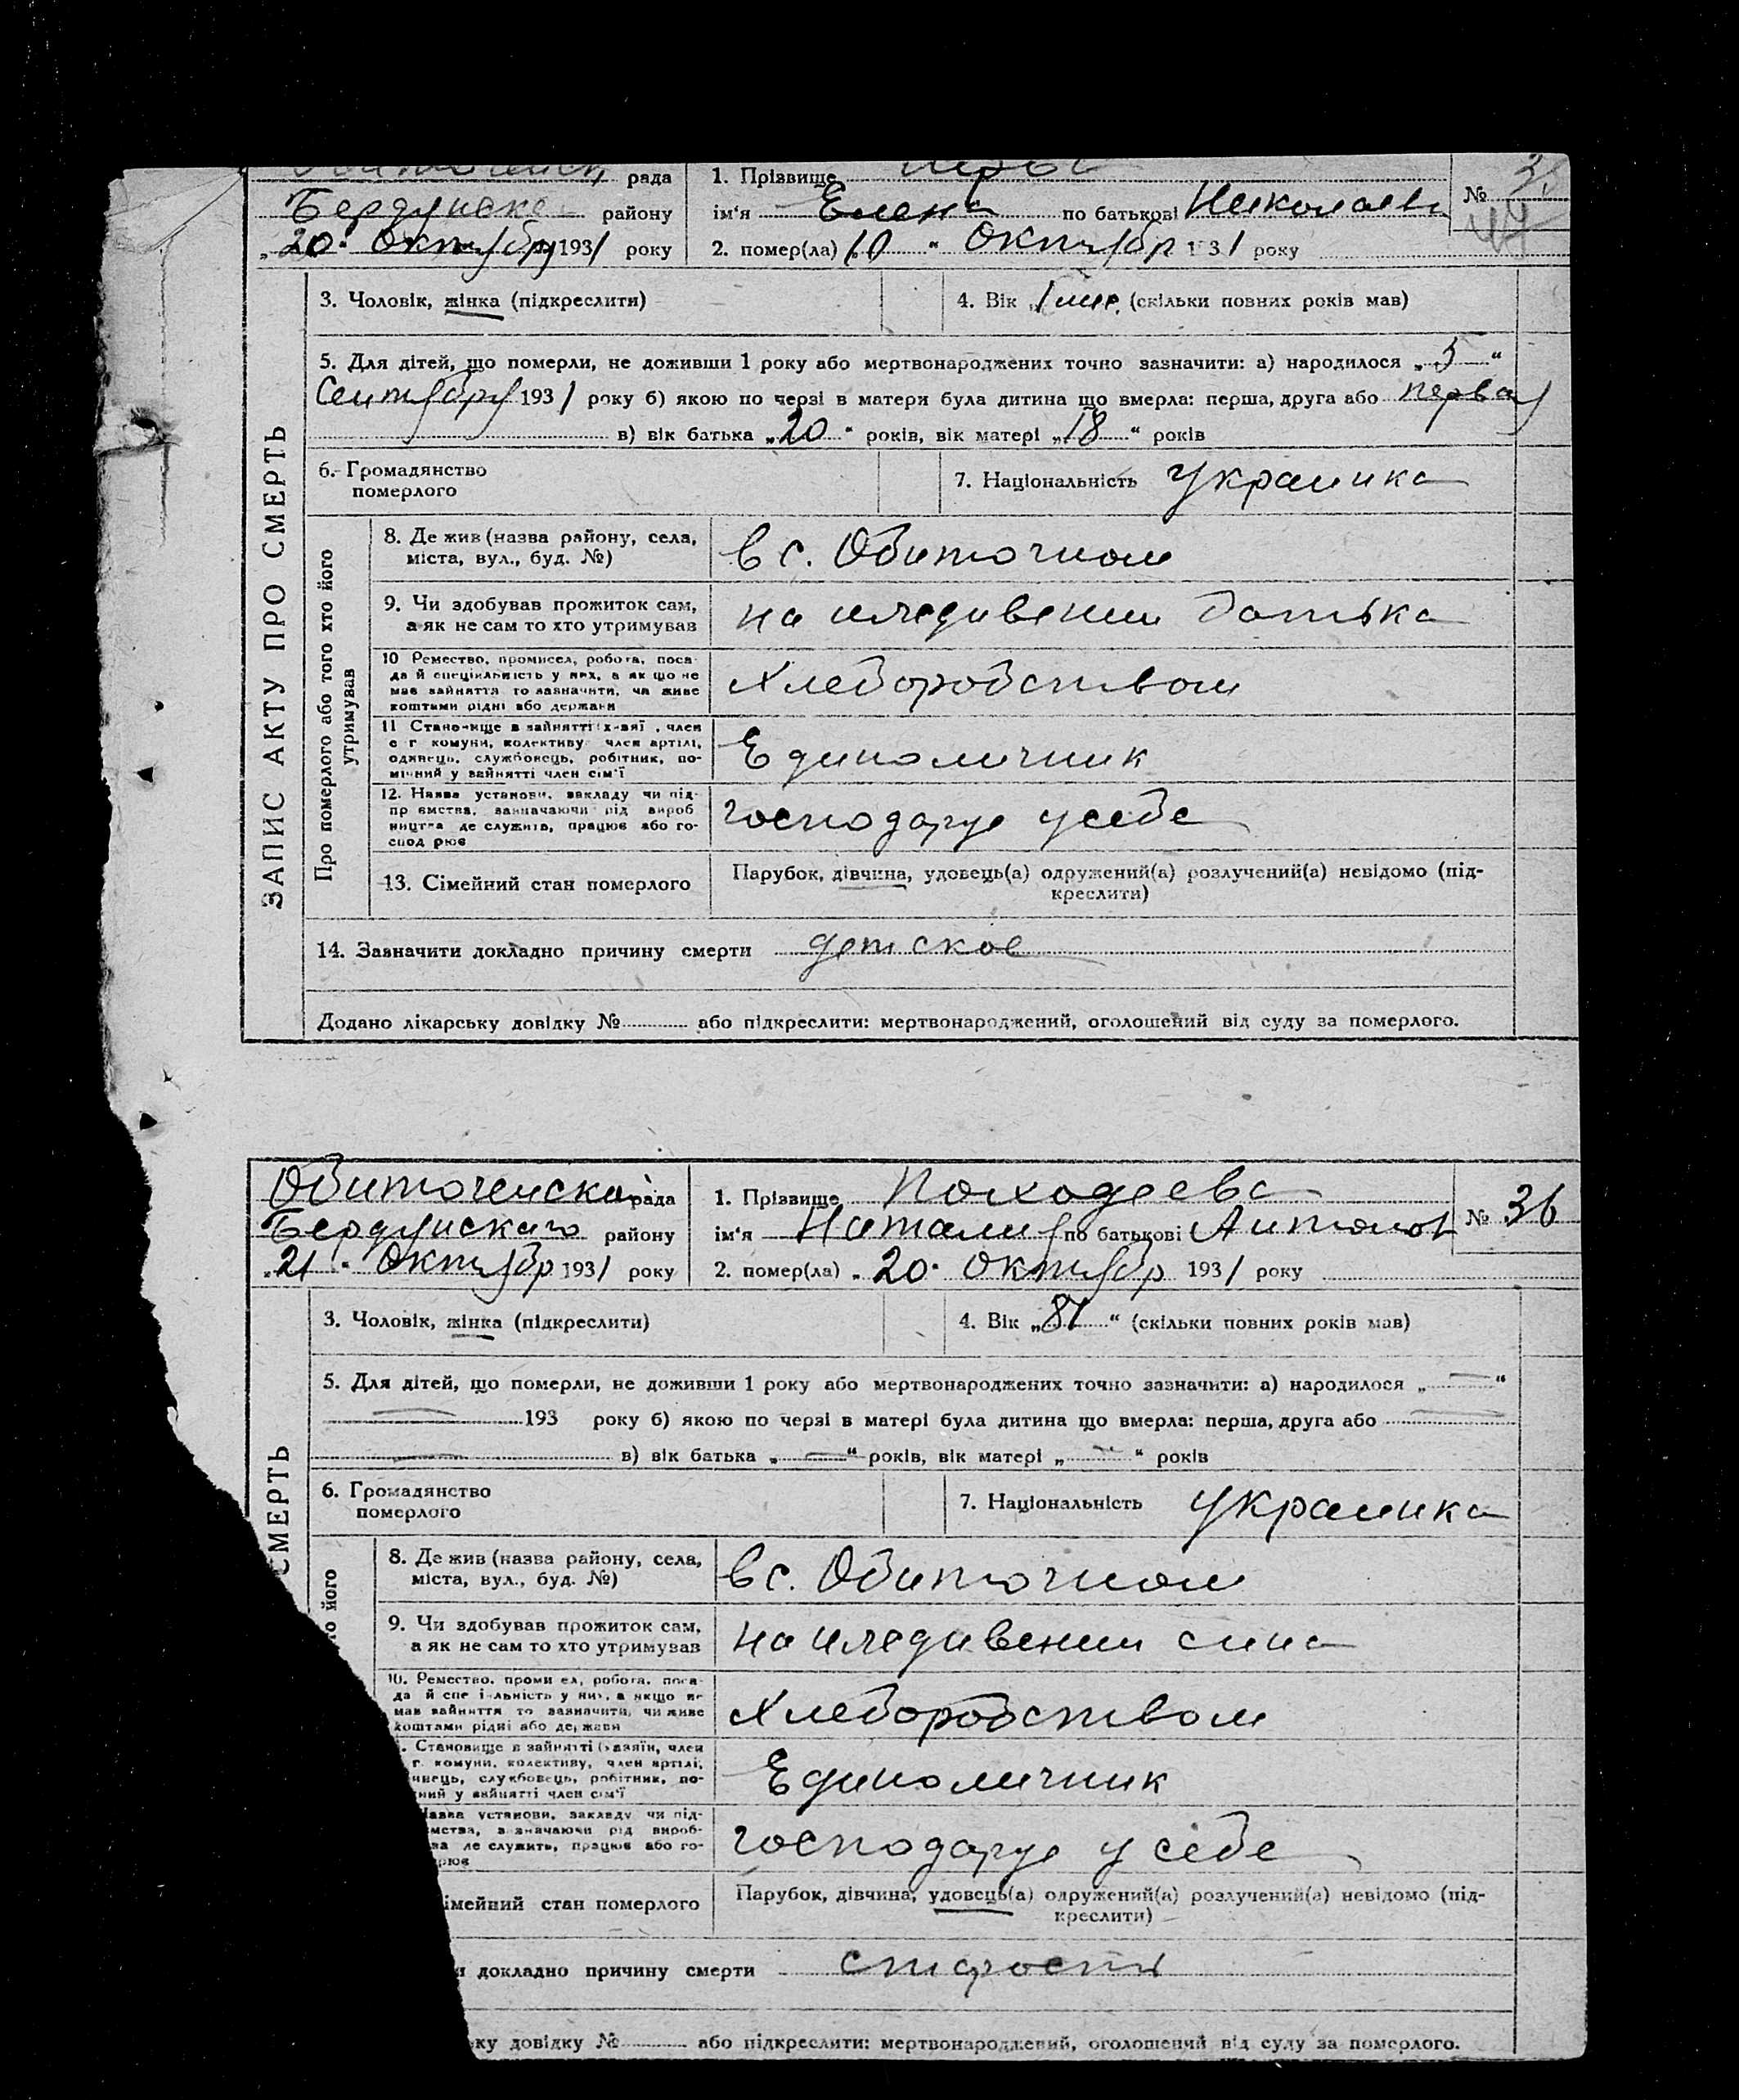 рада 1. Прізвище
Бердянске району ім'я Елена по батькові Николаевн №
„20" Октября 1931 року 2. помер(ла) 10 " Октября 1931 року
ЗАПИС АКТУ ПРО СМЕРТЬ
3. Чоловік, жінка (підкреслити) 4. Вік „1 мис. (скільки повних років мав)
5. Для дітей, що померли, не доживши 1 року або мертвонароджених точно зазначити: а) народилося „5"
Сентября 1931 року б) якою по черзі в матери була дитина що вмерла: перша, друга або первая
в) вік батька „20" років, вік матері „18" років
6. Громадянство померлого 7. Національність украинка
Про померлого або того хто його утримував
8. Де жив (назва району, села,
міста, вул., буд. №) в с. Обиточном
9. Чи здобував прожиток сам,
а як не сам то хто утримував на иждивении батька
10 Ремество, промисел, робота, поса-
да й спеціяльність у них, а як що не
мав зайняття то зазначити, чи живе
коштами рідні або держави Хлеборобством
11 Становище в зайнятті (хазяї, член
с г комуни, колективу член артілі,
одинець, службовець, робітник, по-
мічний у зайнятті член сім'ї Единоличник
12. Назва установи, закладу чи під-
приємства, зазначаючи рід вироб
ництва де служить, працює або го-
спод рює господарує у себе
13. Сімейний стан померлого Парубок, дівчина, удовець(а) одружений(а) розлучений(а) невідомо (під-
креслити)
14. Зазначити докладно причину смерти детское
Додано лікарську довідку № або підкреслити: мертвонароджений, оголошений від суду за померлого.
Обиточенская рада 1. Прізвище Походеева № 36
Бердянскаго району ім'я Натали по батькові Антонов
„21" Октябр 1931 року 2. помер(ла) „20" Октябр 1931 року
СМЕРТЬ
3. Чоловік, жінка (підкреслити) 4. Вік „81" (скільки повних років мав)
5. Для дітей, що померли, не доживши 1 року або мертвонароджених точно зазначити: а) народилося „—"
— 193 року б) якою по черзі в матері була дитина що вмерла: перша, друга або —
— в) вік батька „—" років, вік матері „—" років
6. Громадянство померлого 7. Національність украинка
о його
8. Де жив (назва району, села,
міста, вул., буд. №) в с. Обиточном
9. Чи здобував прожиток сам,
а як не сам то хто утримував на иждивении сина
10. Ремество, проми ел, робота, поса-
да й спе і-льність у них, а якщо не
мав зайняття то зазначити, чи живе
коштами рідні або держави Хлеборобством
. Становище в зайнятті (хазяїн, член
г. комуни, колективу, член артілі,
инець, службовець, робітник, по-
ний у зайнятті член сім'ї Единоличник
Назва установи, закладу чи під-
мства, зазначаючи рід вироб-
ва де служить, працює або го-
рює господарує у себе
імейний стан померлого Парубок, дівчина, удовець(а) одружений(а) розлучений(а) невідомо (під-
креслити)
и докладно причину смерти старость
ку довідку № або підкреслити: мертвонароджений, оголошений від суду за померлого.